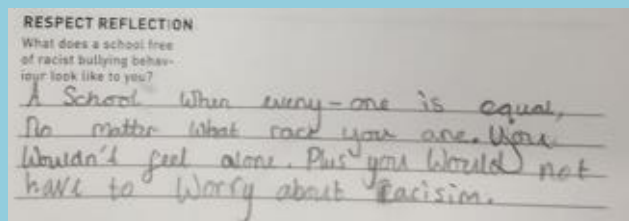 RESPECT REFLECTION
What does a school free
of racist bullying behav-
iour look like to you?
A School When every-one is equal,
no matter what race you are. You
Wouldn't feel alone. Plus you Would not
have to Worry about Racisim.